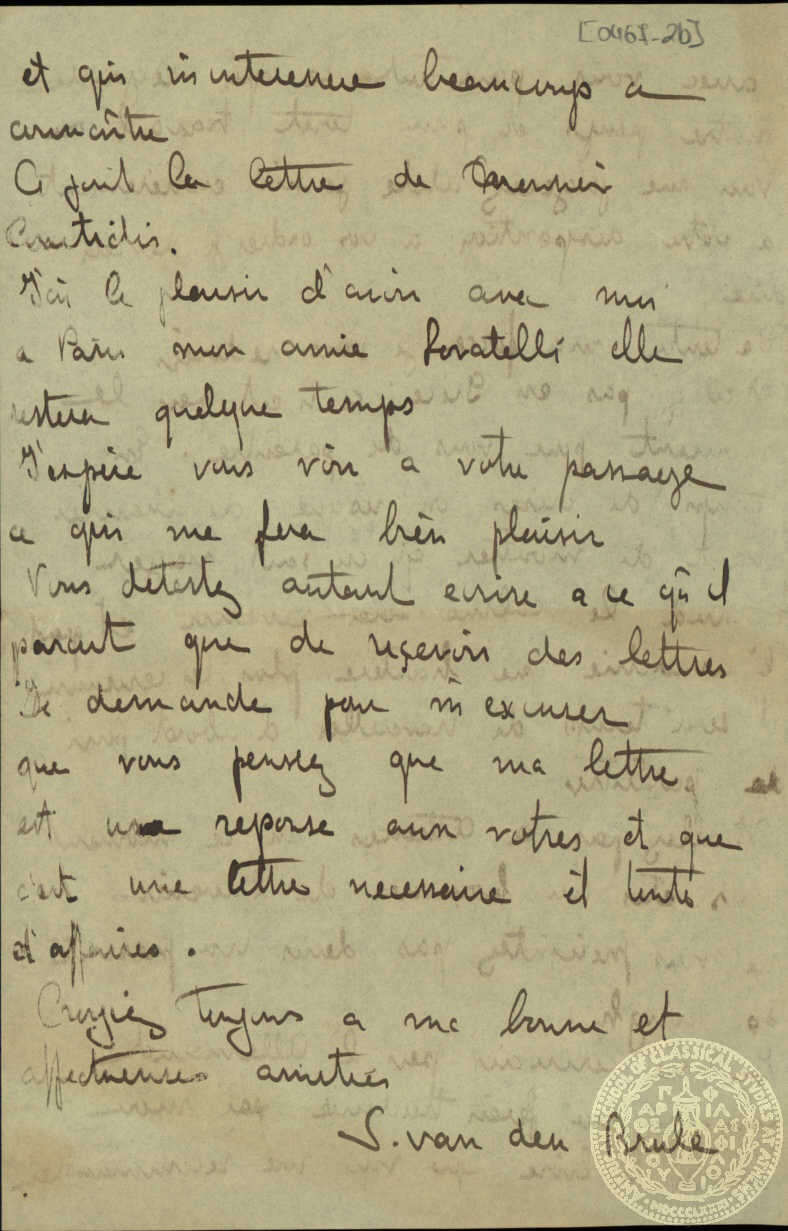 [0461-2b]
et qui m'interesse beaucoup a
connaître
Ci joint la lettre de
J'ai le plaisir d'avoir avec moi
a Paris mon amie Lovatelli elle
restera quelque temps
J'espère vous voir a votre passage
ce qui me fera bien plaisir
Vous detestez autant ecrire a ce qu'il
parait que de reçevoir des lettres
Je demande pour m'excuser
que vous pensiez que ma lettre
est une reponse aux votres et que
c'est une lettre necessaire et toute
d'affaires.
Croyiez toujours a ma bonne et
affectueuses amitiés
S. van den Brule
AMERICAN SCHOOL OF CLASSICAL STUDIES AT ATHENS
MDCCCLXXXI